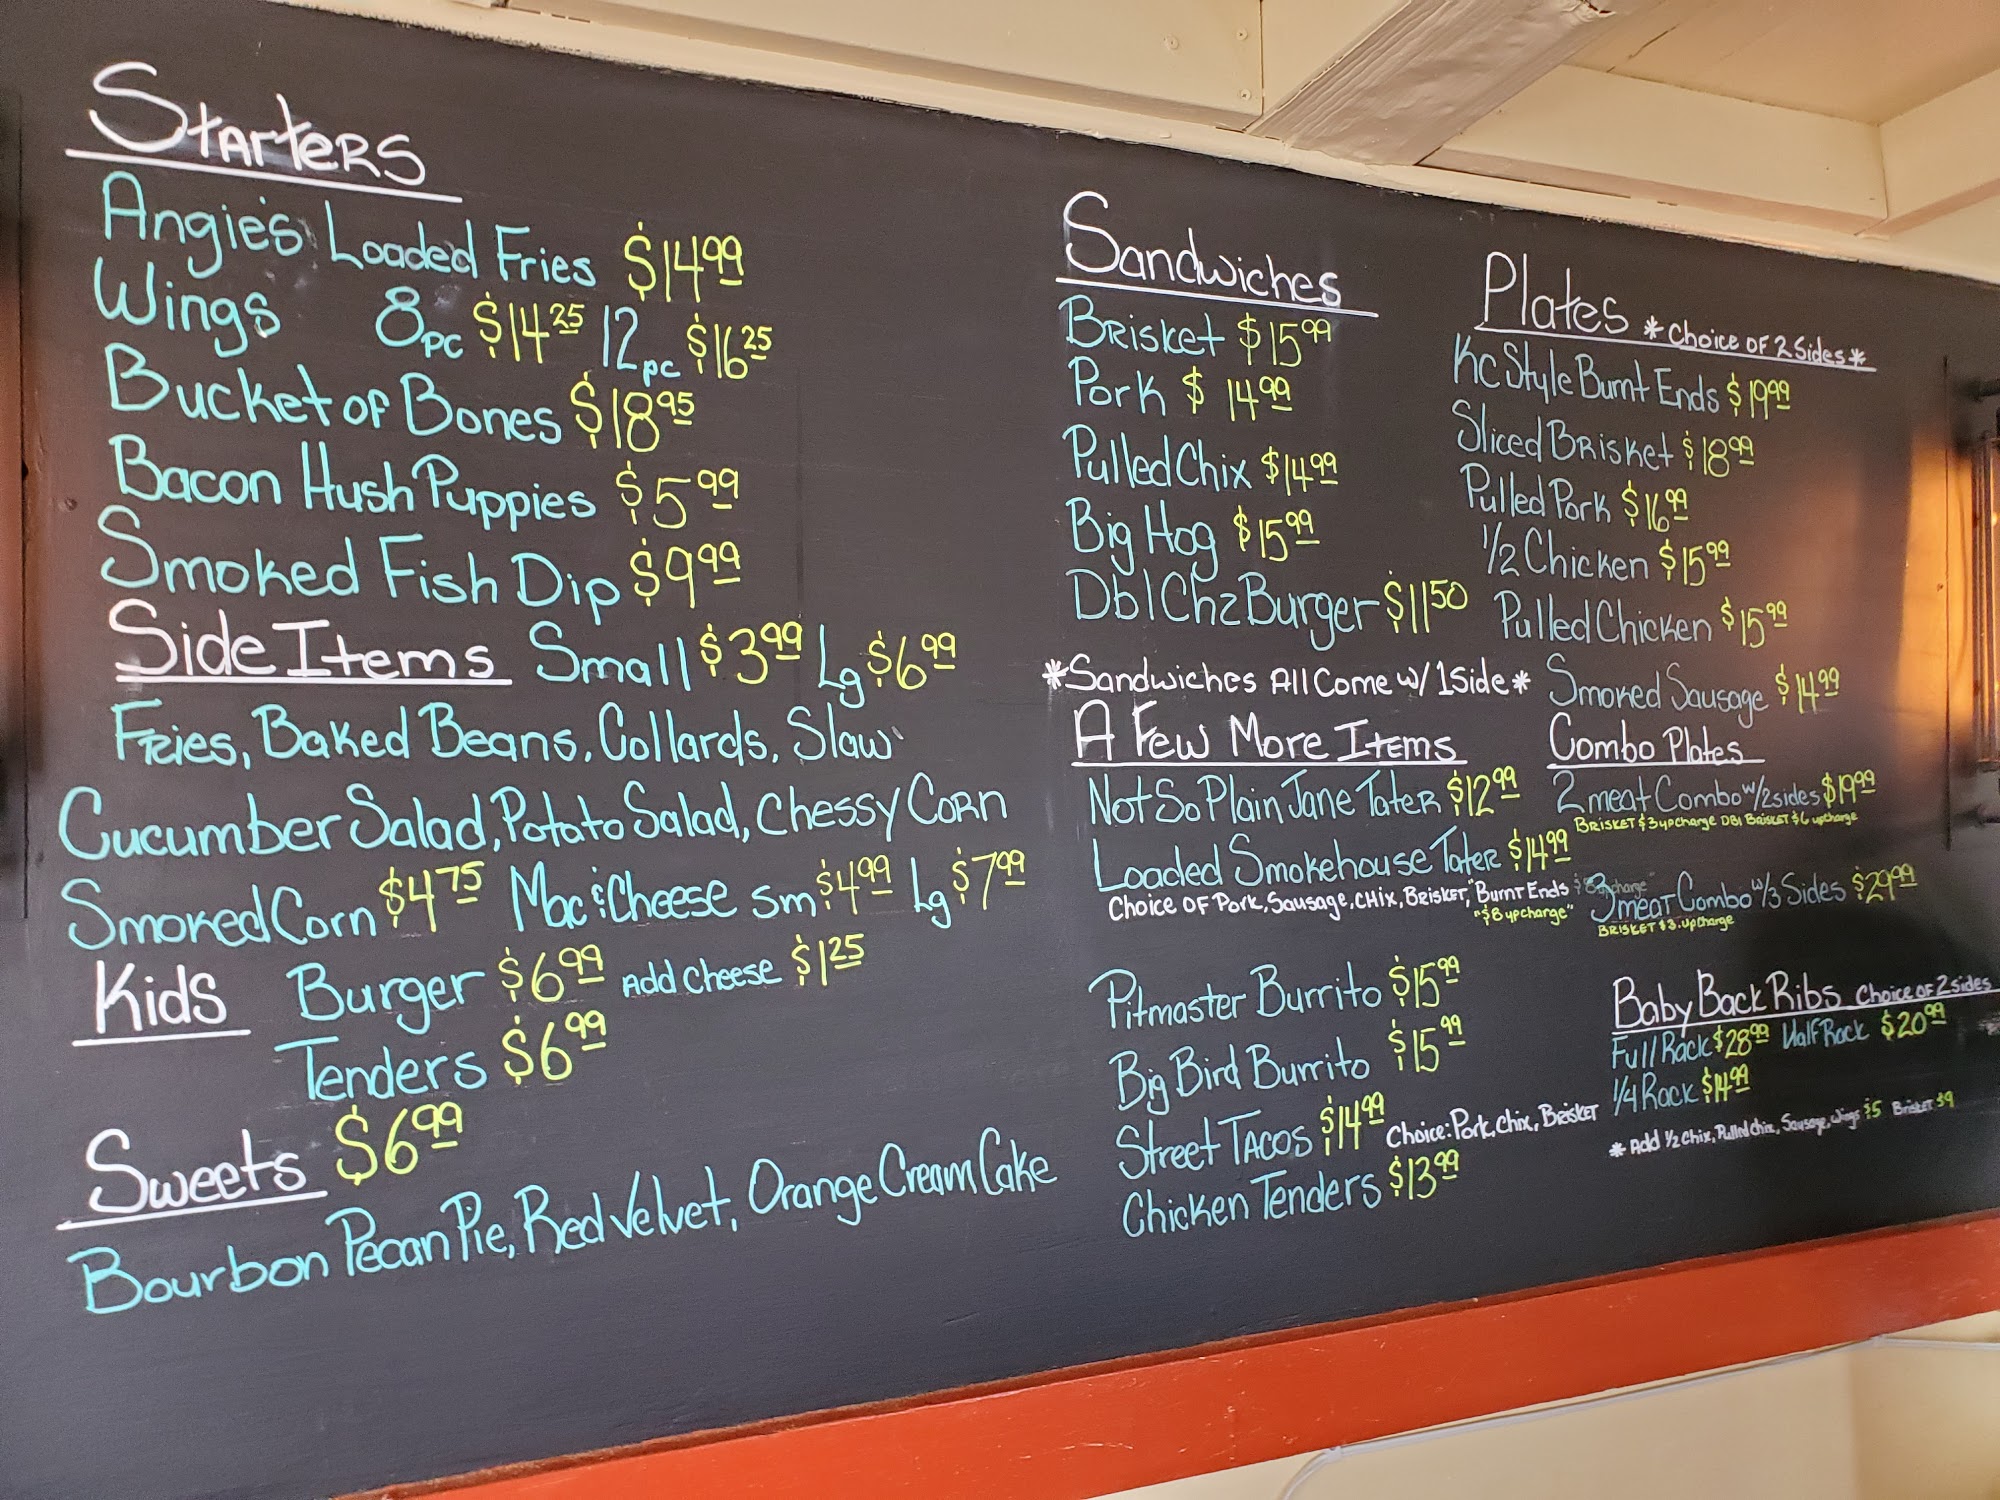 Starters
Angie's Loaded Fries $14.99
Wings 8pc $14.25 12pc $16.25
Bucket of Bones $18.95
Bacon Hush Puppies $5.99
Smoked Fish Dip $9.99
Side Items Small $3.99 Lg $6.99
Fries, Baked Beans, Collards, Slaw
Cucumber Salad, Potato Salad, Chessy Corn
Smoked Corn $4.75 Mac & Cheese sm $4.99 Lg $7.99
Kids Burger $6.99 Add Cheese $1.25
Tenders $6.99
Sweets $6.99
Bourbon Pecan Pie, Red Velvet, Orange Cream Cake
Sandwiches
Brisket $15.99
Pork $14.99
Pulled Chix $14.99
Big Hog $15.99
Dbl Chz Burger $11.50
*Sandwiches All Come w/ 1 Side*
A Few More Items
Not So Plain Jane Tater $12.99
Loaded Smokehouse Tater $14.99
Choice of Pork, Sausage, Chix, Brisket, "Burnt Ends
"$8 upcharge"
Pitmaster Burrito $15.99
Big Bird Burrito $15.99
Street Tacos $14.99 Choice: Pork, Chix, Brisket
Chicken Tenders $13.99
Plates *Choice of 2 Sides*
KC Style Burnt Ends $19.99
Sliced Brisket $18.99
Pulled Pork $16.99
1/2 Chicken $15.99
Pulled Chicken $15.99
Smoked Sausage $14.99
Combo Plates
2 meat Combo w/ 2 sides $19.99
Brisket $3 upcharge Dbl Brisket $6 upcharge
3 meat Combo w/ 3 Sides $29.99
Brisket $3. upcharge
Baby Back Ribs Choice of 2 sides
Full Rack $28.99 Half Rack $20.99
1/4 Rack $14.99
* Add 1/2 Chix, Pulled Chix, Sausage, Wings $5 Brisket $9